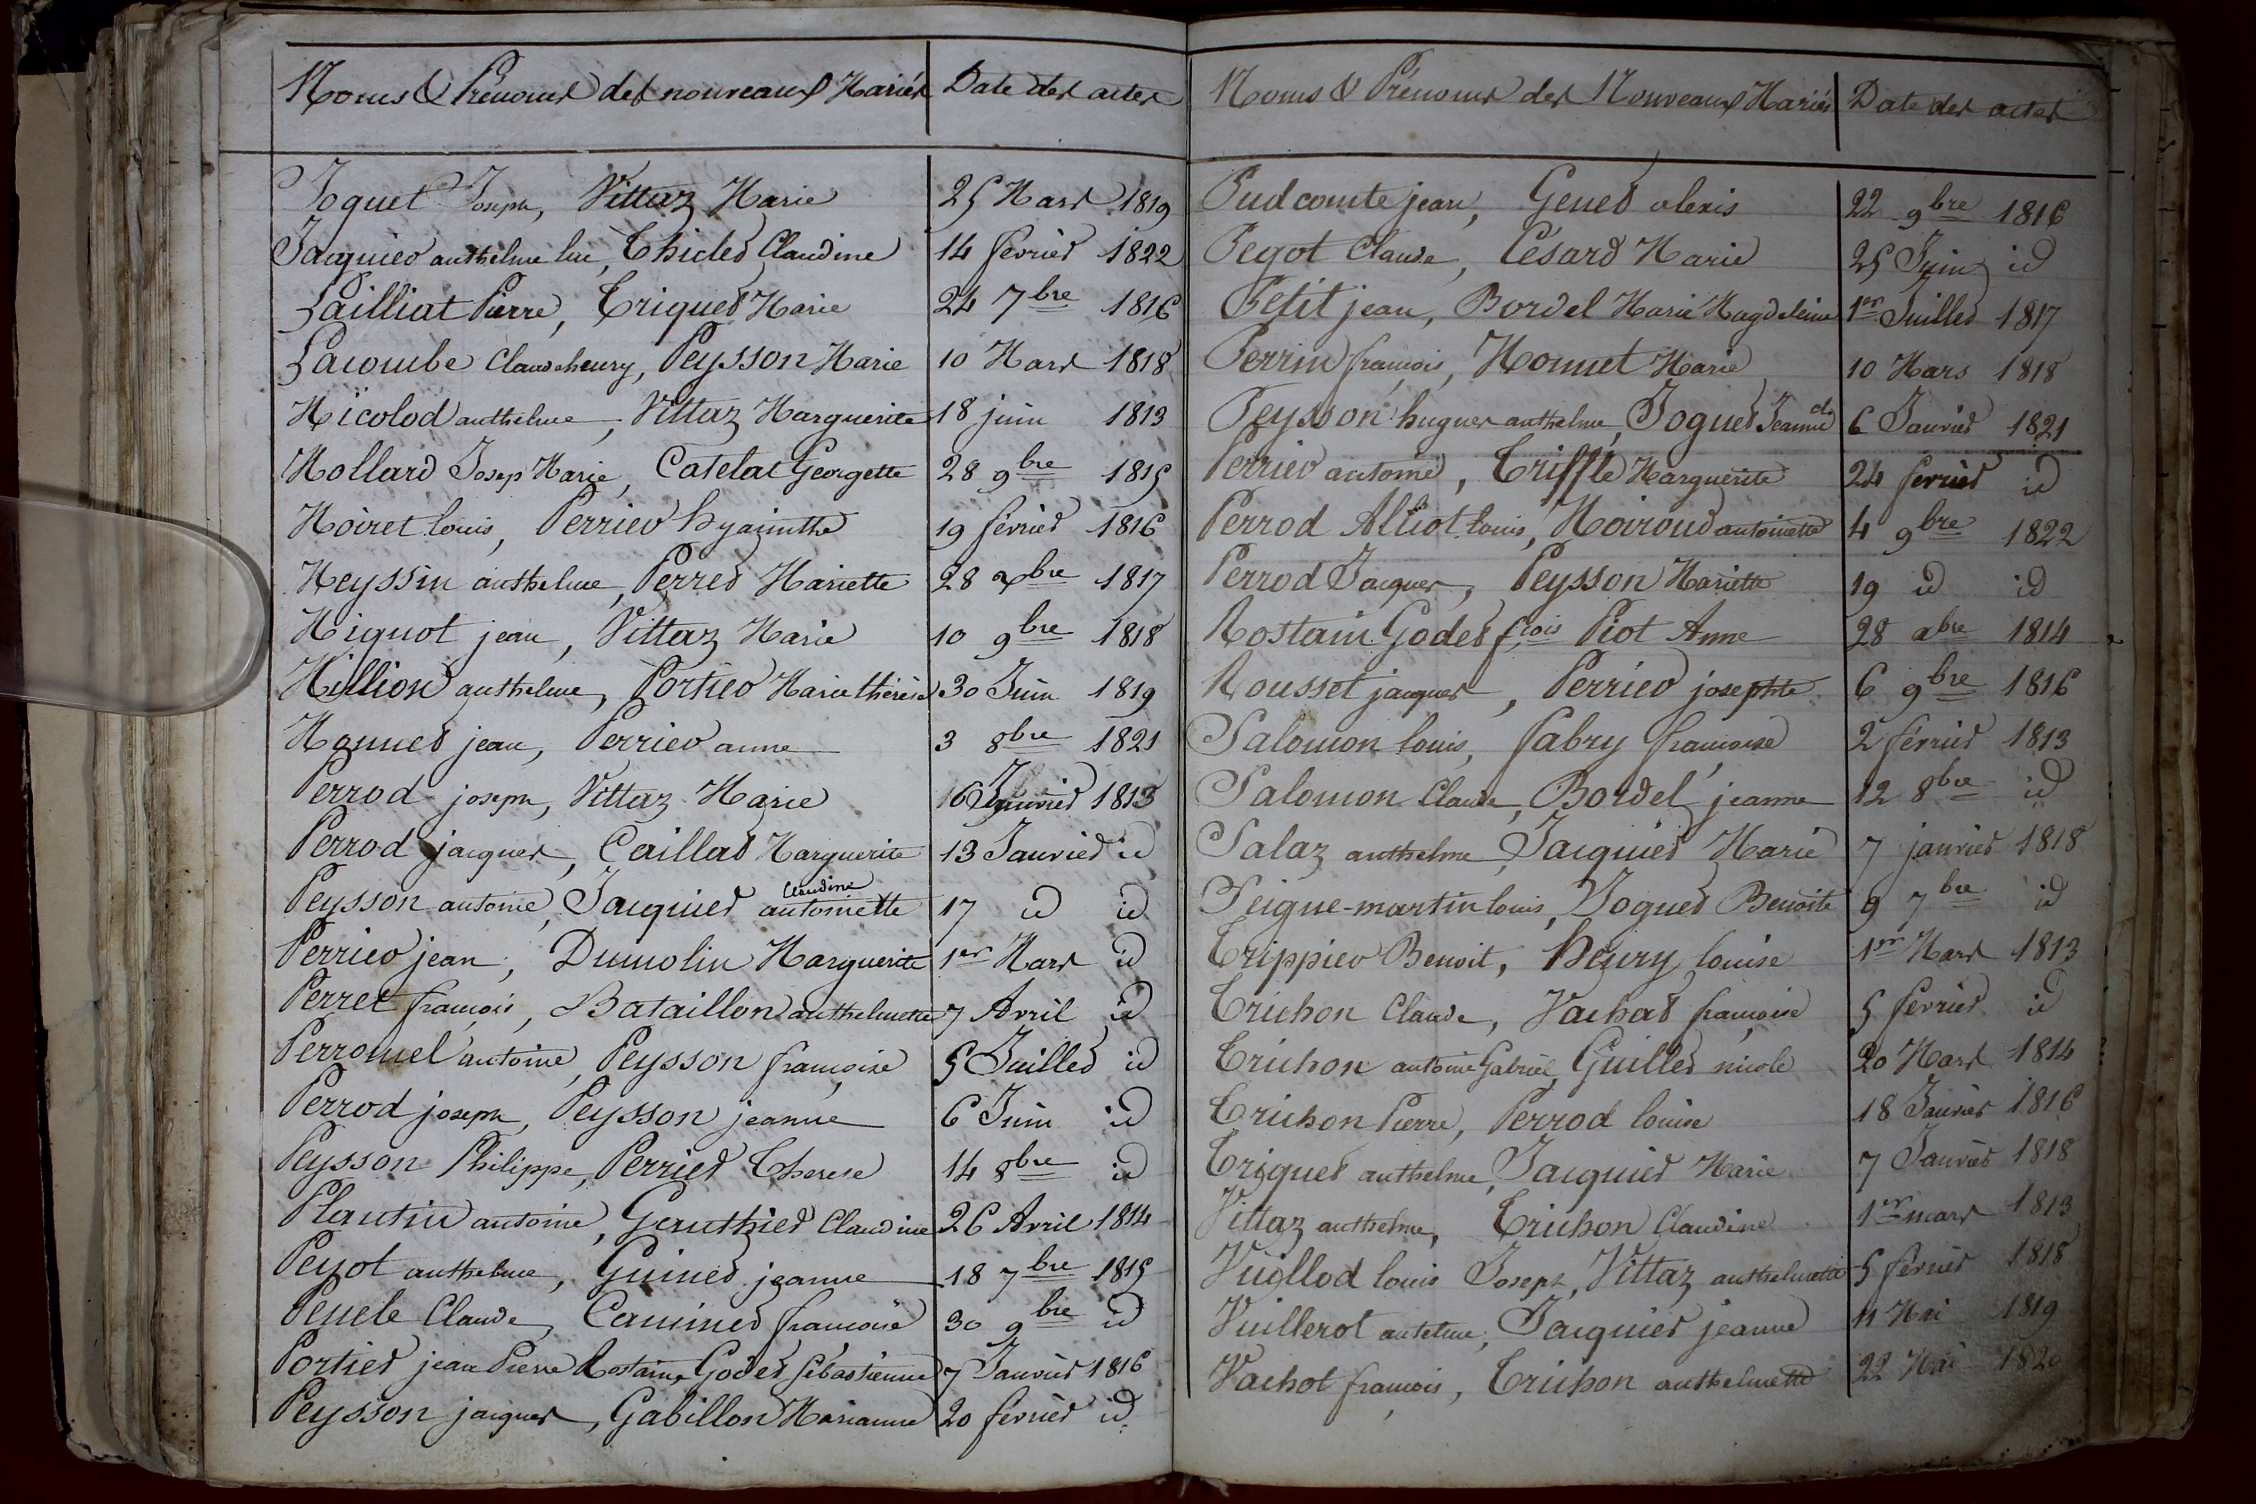 Noms & Prénoms des nouveaux Mariés Date des actes
Joguet Joseph, Vittaz Marie 25 Mars 1819
Jacquier anthelme luc, Claudine 14 février 1822
Lailliat Pierre, Triquet Marie 24 7bre 1816
Lacombe Claude henry, Peysson Marie 10 Mars 1818
Nicolod anthelme, Vittaz Marguerite 18 juin 1813
Mollard Josep Marie, Catelat Georgette 28 9bre 1815
Moiret louis, Perrier hyacinthe 19 février 1816
Meyssin anthelme, Perret Mariette 28 bre 1817
Miguot jean, Vittaz Marie 10 9bre 1818
Million anthelme, Portier Marie thérèse 30 Juin 1819
Monnet jean, Perrier anne 3 8bre 1821
Perrod joseph, Vittaz Marie Janvier 1813
Perrod jacques, Caillat Marguerite 13 Janvier id
Peysson antoine, Jacquier antoinette Claudine 17 id id
Perrier jean, Dumolin Marguerite 1er Mars id
Perret françois, Bataillon anthelmette 7 Avril id
antoine, Peysson françoise 5 Juillet id
Perrod joseph, Peysson jeanne 6 Juin id
Peysson Philippe, Perrier Therese 14 8bre id
Plantin antoine, Gauthier Claudine 26 Avril 1814
Peyot anthelme, Guinet jeanne 18 7bre 1815
Claude, françoise 30 9bre id
Portier jean Pierre Rostaing Godet sébastienne 7 Janvier 1816
Peysson jacques, Gabillon Marianne 20 février id
Noms & Prénoms des Nouveaux Mariés Date des actes
Pudcomte jean, Genet alexis 22 9bre 1816
Pegot Claude, Césard Marie 25 Juin id
Petit jean, Bordel Marie Magdeleine 1er Juillet 1817
Perrin françois, Monnet Marie 10 Mars 1818
Peysson hugues anthelme, Joguet Jeanne 6 Janvier 1821
Perrier antoine, Triffle Marguerite 24 fevrier id
Perrod Alliot louis, Moiroud antoinette 4 9bre 1822
Perrod Jacques, Peysson Mariette 19 id id
Rostain Godet fcois Piot Anne 28 bre 1814
Rousset jacques, Perrier josephte 6 9bre 1816
Salomon louis, fabry françoise 2 février 1813
Salomon Claude, Bordel jeanne 12 8bre id
Salaz anthelme, Jacquier Marie 7 janvier 1818
Seigne-martin louis, Joguet Benoite 9 7bre id
Trippier Benoit, henry louise 1er Mars 1813
Trichon Claude, Vachat françoise 5 fevrier id
Trichon antoine Gabriel, Guillet nicole 20 Mars 1814
Trichon Pierre, Perrod louise 18 Janvier 1816
Triquet anthelme, Jacquier Marie 7 Janvier 1818
Vittaz anthelme, Trichon Claudine 1er mars 1813
Vuollod louis Joseph, Vittaz anthelmette 5 février 1818
Vuillerot antelme, Jacquier jeanne 11 Mai 1819
Vachot françois, Trichon anthelmette 22 Mai 1820